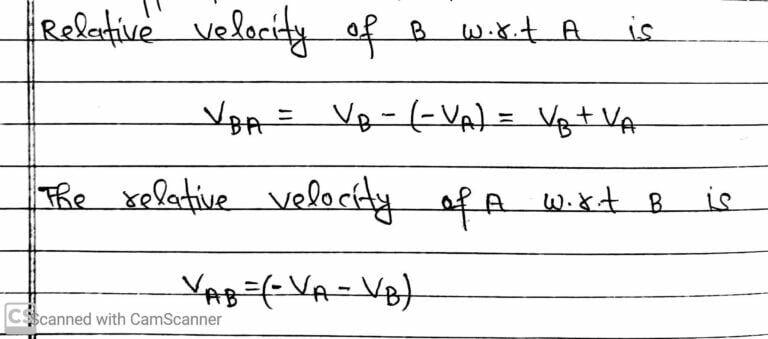 Relative velocity of B w.r.t A is
V_BA = V_B - (-V_A) = V_B + V_A
The relative velocity of A w.r.t B is
V_AB = (-V_A - V_B)
CS Scanned with CamScanner